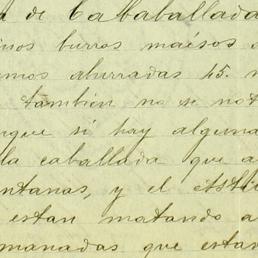 de Cababallada
burros maesos
ahurradas 45.
también no se not
si hay alguna
la caballada que a
ntanas, y el
estan matando a
manadas que estan